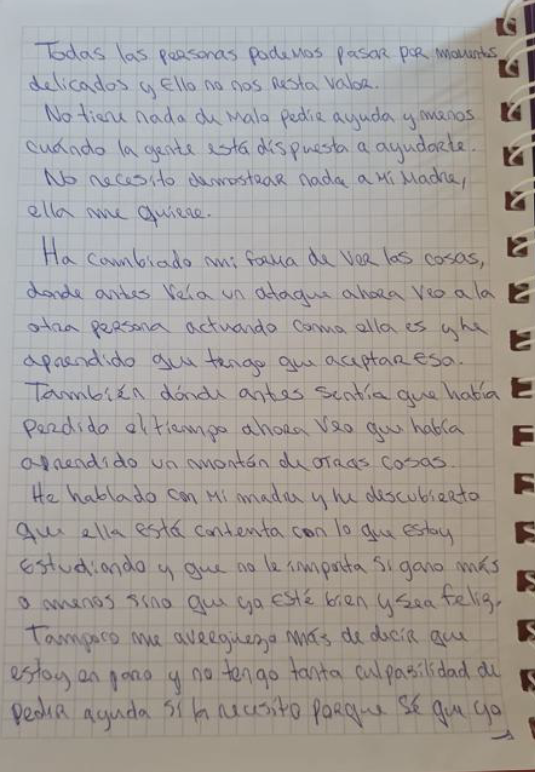 Todas las personas podemos pasar por momentos
delicados y Ello no nos resta valor.
No tiene nada de malo pedir ayuda y menos
cuándo la gente está dispuesta a ayudarte.
No necesito demostrar nada a Mi Madre,
ella me quiere.
Ha cambiado mi forma de ver las cosas,
donde antes veía un ataque ahora veo a la
otra persona actuando como ella es y he
aprendido que tengo que aceptar eso.
También dónde antes sentía que había
perdido el tiempo ahora veo que había
aprendido un montón de otras cosas.
He hablado con Mi madre y he descubierto
que ella está contenta con lo que estoy
estudiando y que no le importa si gano más
o menos sino que yo esté bien y sea feliz.
Tampoco me averguenzo más de decir que
estoy en paro y no tengo tanta culpabilidad de
pedir ayuda si la necesito porque sé que yo
→